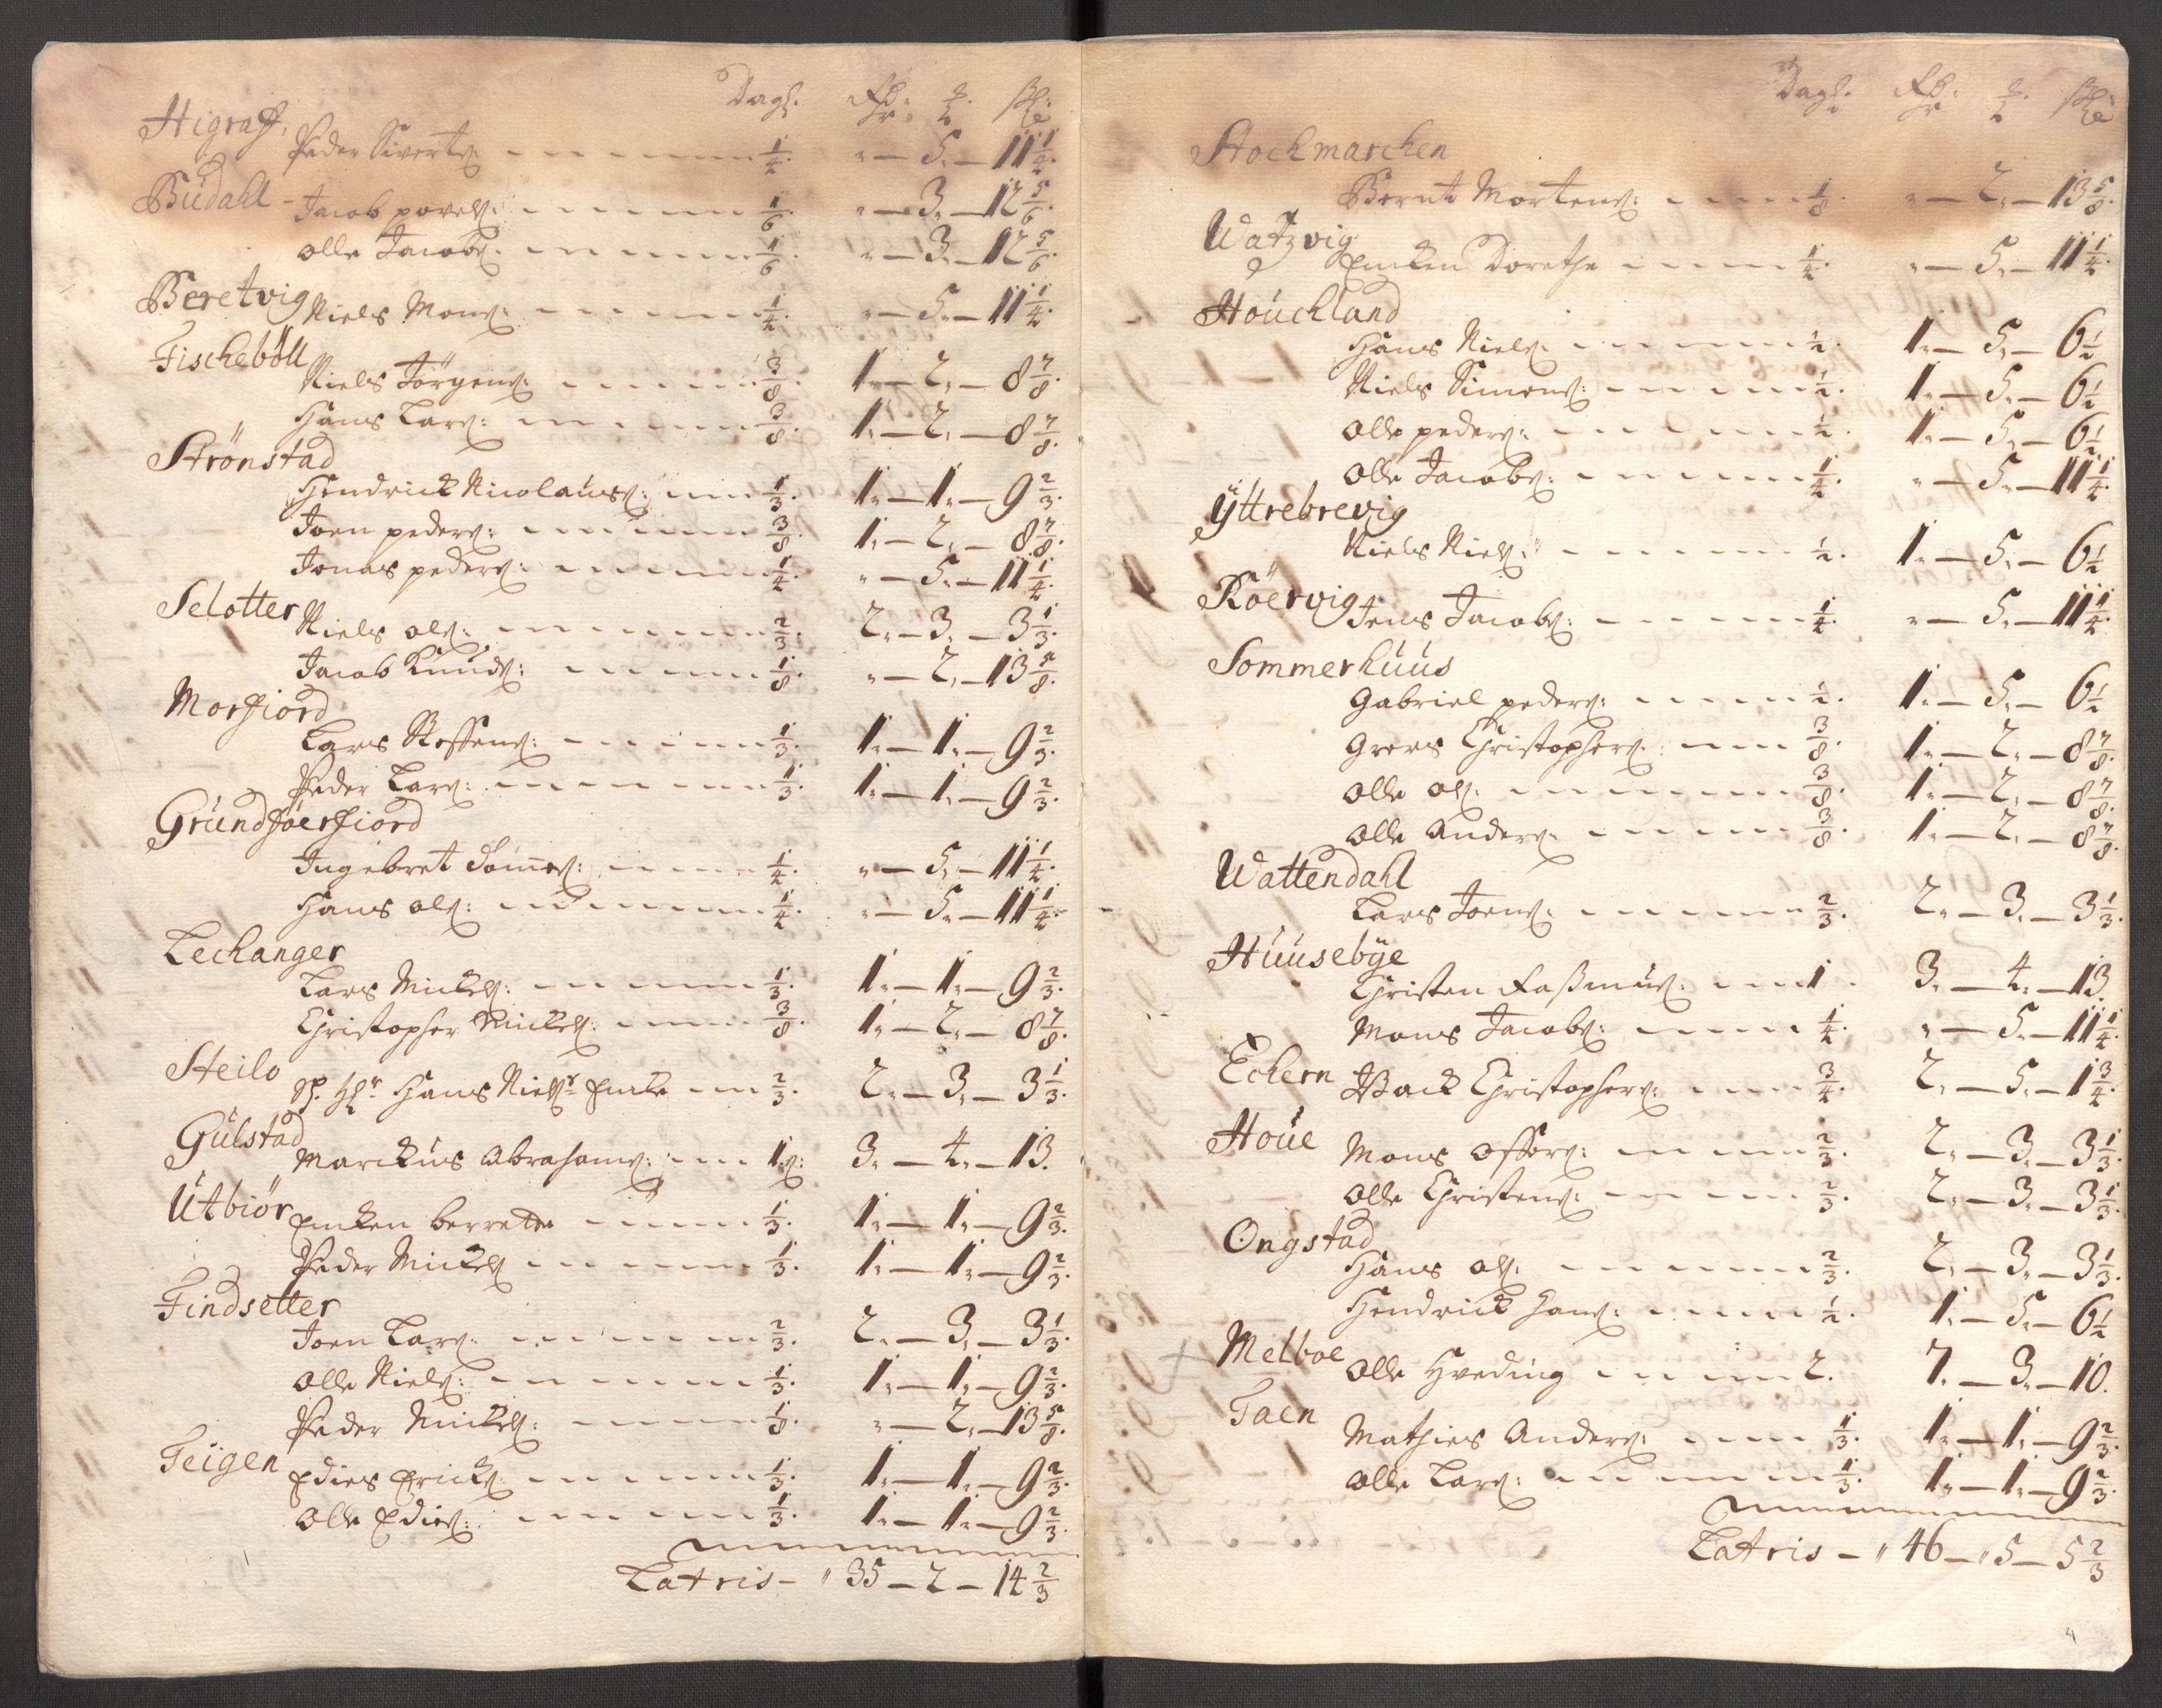 Dagh. Rdr: ₰. ß:
Higraff,
Peder Sivertz: 1/4. " — 5. — 11 1/4.
Budahl - Jacob povels: 1/6. " — 3. — 12 5/6.
Olle Jacobs: 1/6. " — 3. — 12 5/6.
Beretvig Niels Mons: 1/4. " — 5. — 11 1/4.
Fischeböll
Niels Jörgens: 3/8. 1. — 2. — 8 7/8.
Hans Lars: 3/8. 1. — 2. — 8 7/8.
Strönstad
Hendrick Nicolaus: 1/3. 1. — 1. — 9 2/3.
Joen peders: 3/8. 1. — 2. — 8 7/8.
Jonas peders: 1/4. " — 5. — 11 1/4.
Selotter Niels Ols: 2/3. 2. — 3. — 3 1/3.
Jacob Knuds: 1/8. " — 2. — 13 5/8.
Morfiord
Lars Steffens: 1/3. 1. — 1. — 9 2/3.
Peder Lars: 1/3. 1. — 1. — 9 2/3.
Grundföerfiord
Ingebret Tommes: 1/4. " — 5. — 11 1/4.
Hans Ols: 1/4. " — 5. — 11 1/4.
Lechanger
Lars Mickels: 1/3. 1. — 1. — 9 2/3.
Christopher Mickels: 3/8. 1. — 2. — 8 7/8.
Steilo Sl. Hr Hans Nielsr Encke 2/3. 2. — 3. — 3 1/3.
Gulstad
Marckus Abrahams: 1. 3. — 4. — 13.
Utbiör Encken berrette 1/3. 1. — 1. — 9 2/3.
Peder Mickels 1/3. 1. — 1. — 9 2/3.
Findsetter
Joen Lars: 2/3. 2. — 3. — 3 1/3.
Olle Niels: 1/3. 1. — 1. — 9 2/3.
Peder Mickels: 1/8. " — 2. — 13 5/8.
Teigen Edies Ericks: 1/3. 1. — 1. — 9 2/3.
Olle Edies: 1/3. 1. — 1. — 9 2/3.
Latris — " 35 — 2 — 14 2/3
Dagh. Rdr: ₰. ß:
Stochmarchen
Bernt Mortens: 1/8. " — 2. — 13 5/8.
Watzvig Encken Dorethe 1/4. " — 5. — 11 1/4.
Houchland
Hans Niels: 1/2. 1. — 5. — 6 1/2
Niels Simons: 1/2. 1. — 5. — 6 1/2
Olle peders: 1/2. 1. — 5. — 6 1/2
Olle Jacobs: 1/4. " — 5. — 11 1/4.
Yttrebrevig
Niels Niels: 1/2. 1. — 5. — 6 1/2
Röervig Jens Jacobs: 1/4. " — 5. — 11 1/4.
Sommerhuus
Gabriel peders: 1/2. 1. — 5. — 6 1/2
Greers Christophers: 3/8. 1. — 2. — 8 7/8.
Olle Ols: 3/8. 1. — 2. — 8 7/8.
Olle Anders: 3/8. 1. — 2. — 8 7/8.
Wattendahl
Lars Joens: 2/3. 2. — 3. — 3 1/3.
Huusebÿe
Christen Raßmus: 1. 3. — 4. — 13.
Mons Jacobs: 1/4. " — 5. — 11 1/4.
Echern Isack Christophers: 3/4. 2. — 5. — 1 3/4.
Houe Mons Offers: 2/3. 2. — 3. — 3 1/3.
Olle Christens: 2/3. 2. — 3. — 3 1/3.
Ongstad
Hans Ols: 2/3. 2. — 3. — 3 1/3.
Hendrick Hans: 1/2. 1. — 5. — 6 1/2
Melboe Olle Hveding 2. 7. — 3. — 10.
Taen
Mathies Anders: 1/3. 1. — 1. — 9 2/3.
Olle Lars: 1/3. 1. — 1. — 9 2/3.
Latris — " 46 — " 5 — 5 2/3